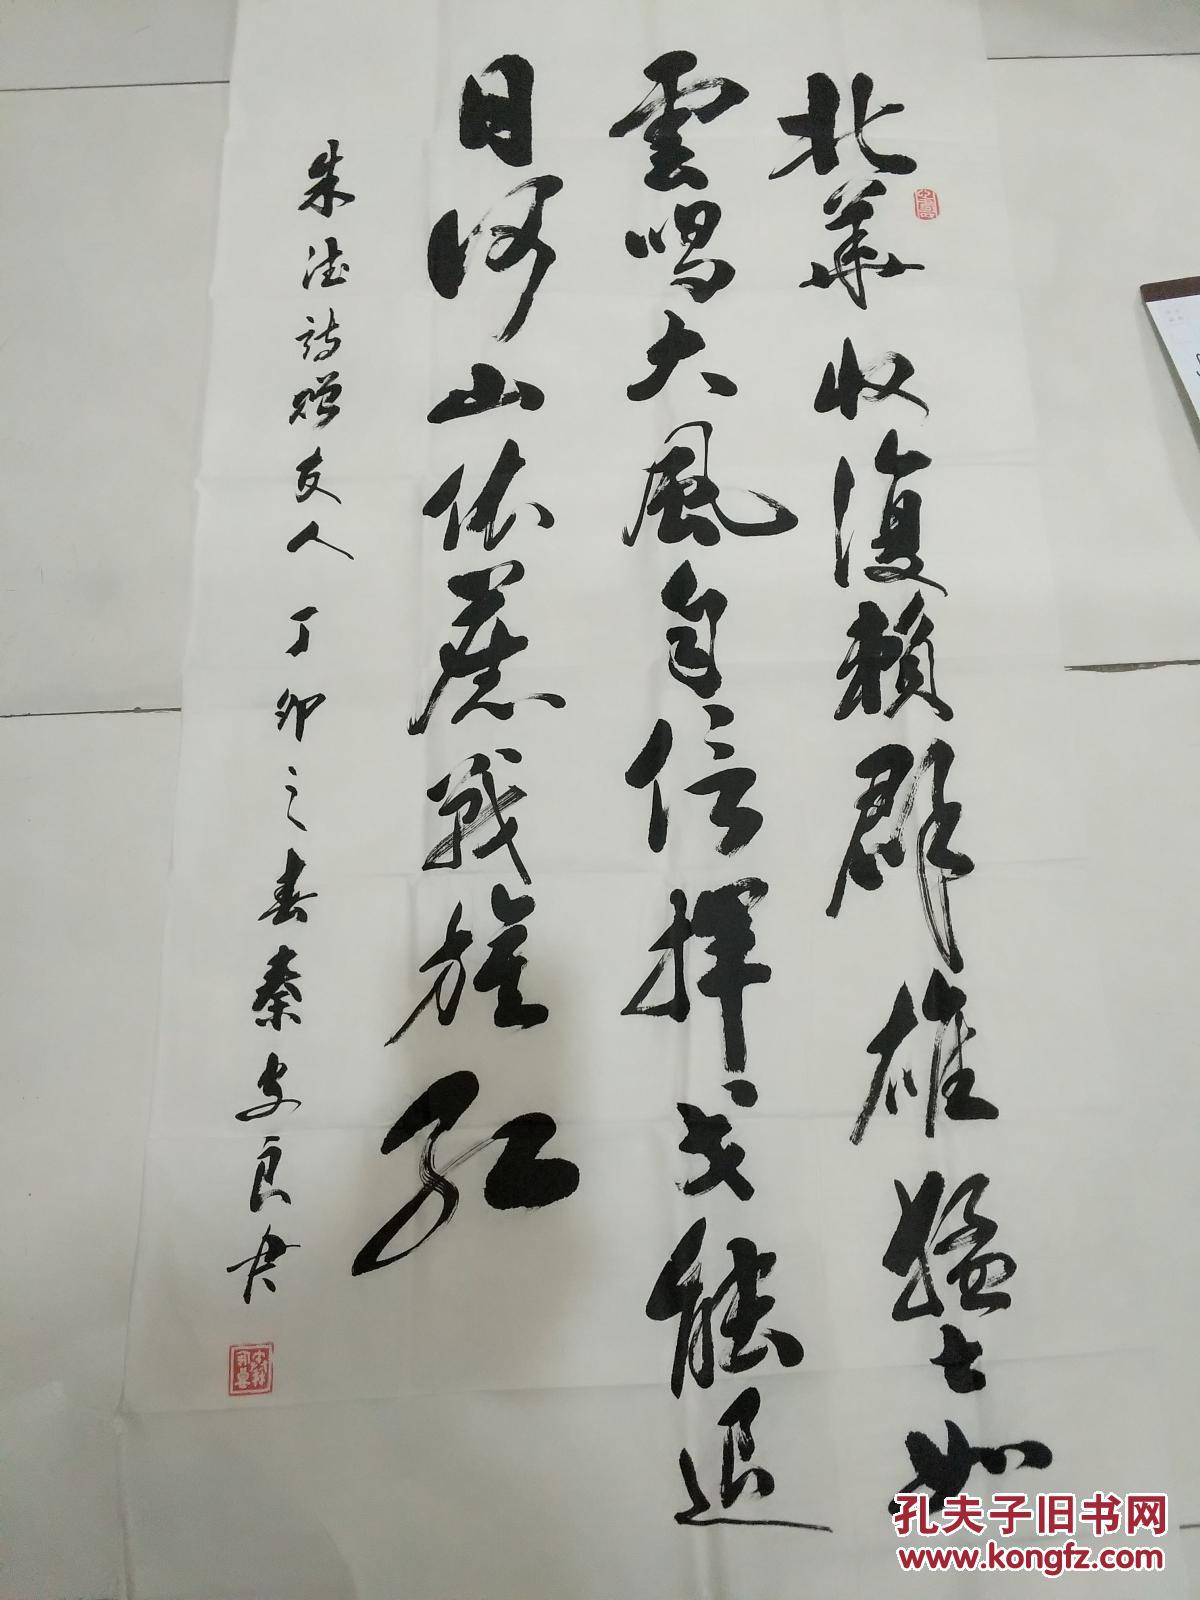 北華收復賴群雄猛士如
雲唱大風自信揮戈能退
日河山依舊戰旗紅
朱德詩贈友人丁卯之春秦安良书
孔夫子旧书网
www.kongfz.com